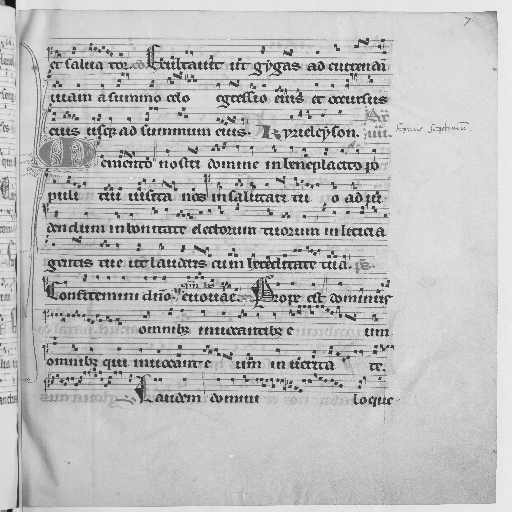 7
et salua tor. Exultauit ut gygas ad currendā
uiam a summo celo egressio eius et occursus
eius usq; ad summum eius. Kyrieleyson.
Memento nostri domine in beneplacito po
puli tui uisita nos in salutari tu o ad ui
dendum in bonitate electorum tuorum in leticia
gentis tue ut lauderis cum hereditate tua. ps.
Confitemini dño. euouae. Prope est dominus
omnibꝫ inuocantibꝫ e um
omnibꝫ qui inuocant e um in uerita te.
Laudem domini loque